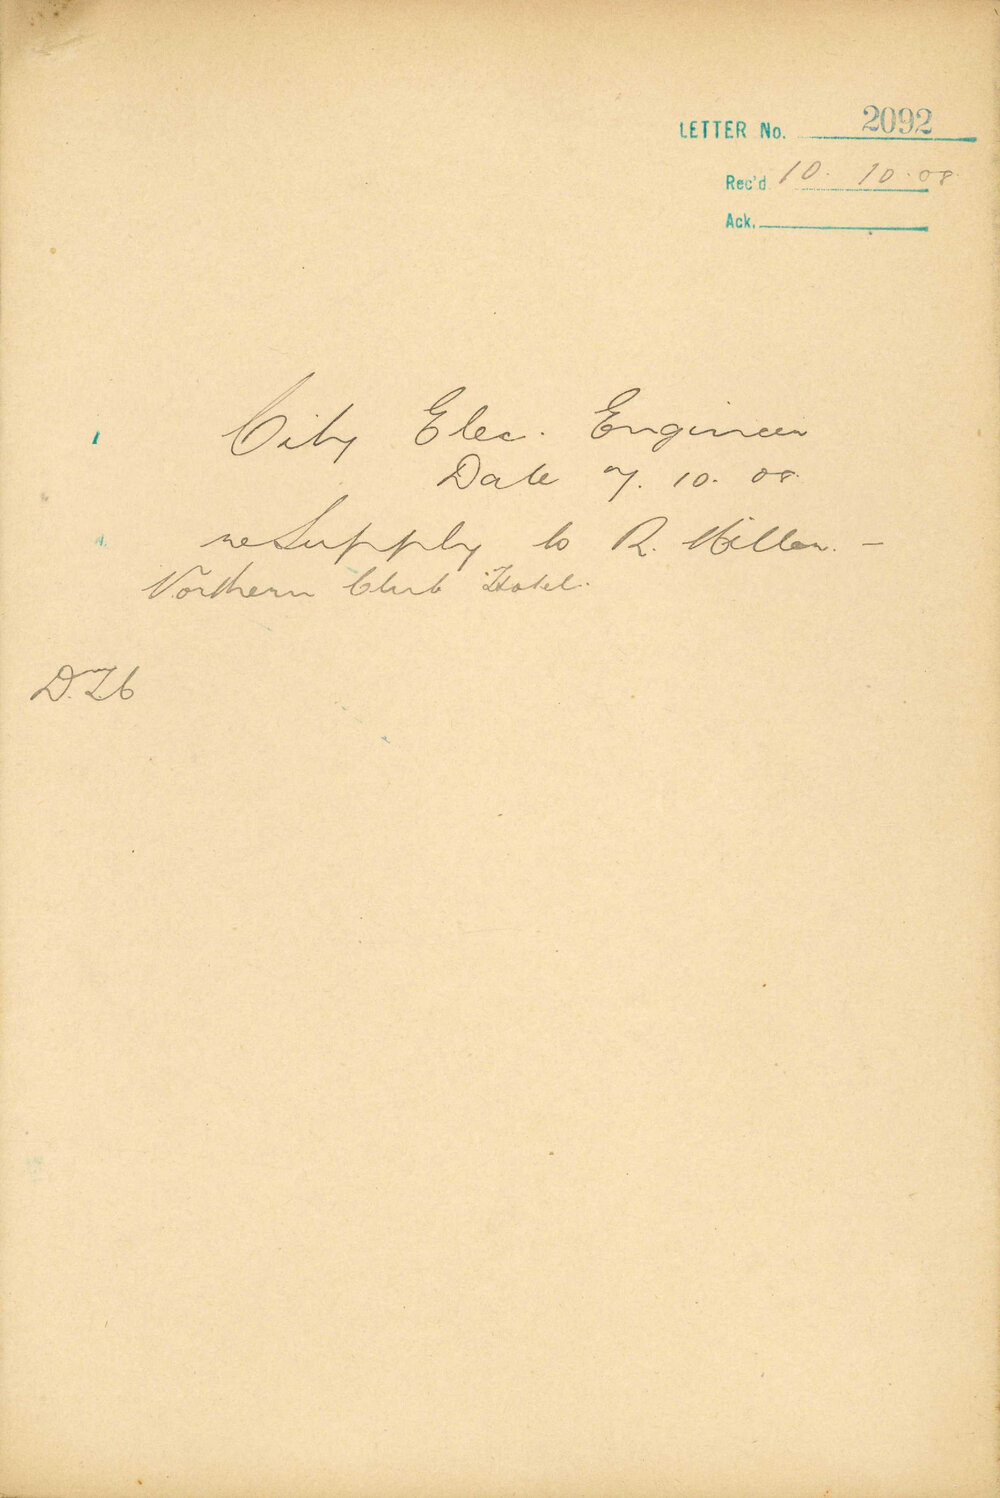 LETTER No. 2092
Rec'd 10. 10. 08
Ack.
City Elec. Engineer
Date 7. 10. 08
re Supply to R. Miller. –
Northern Club Hotel.